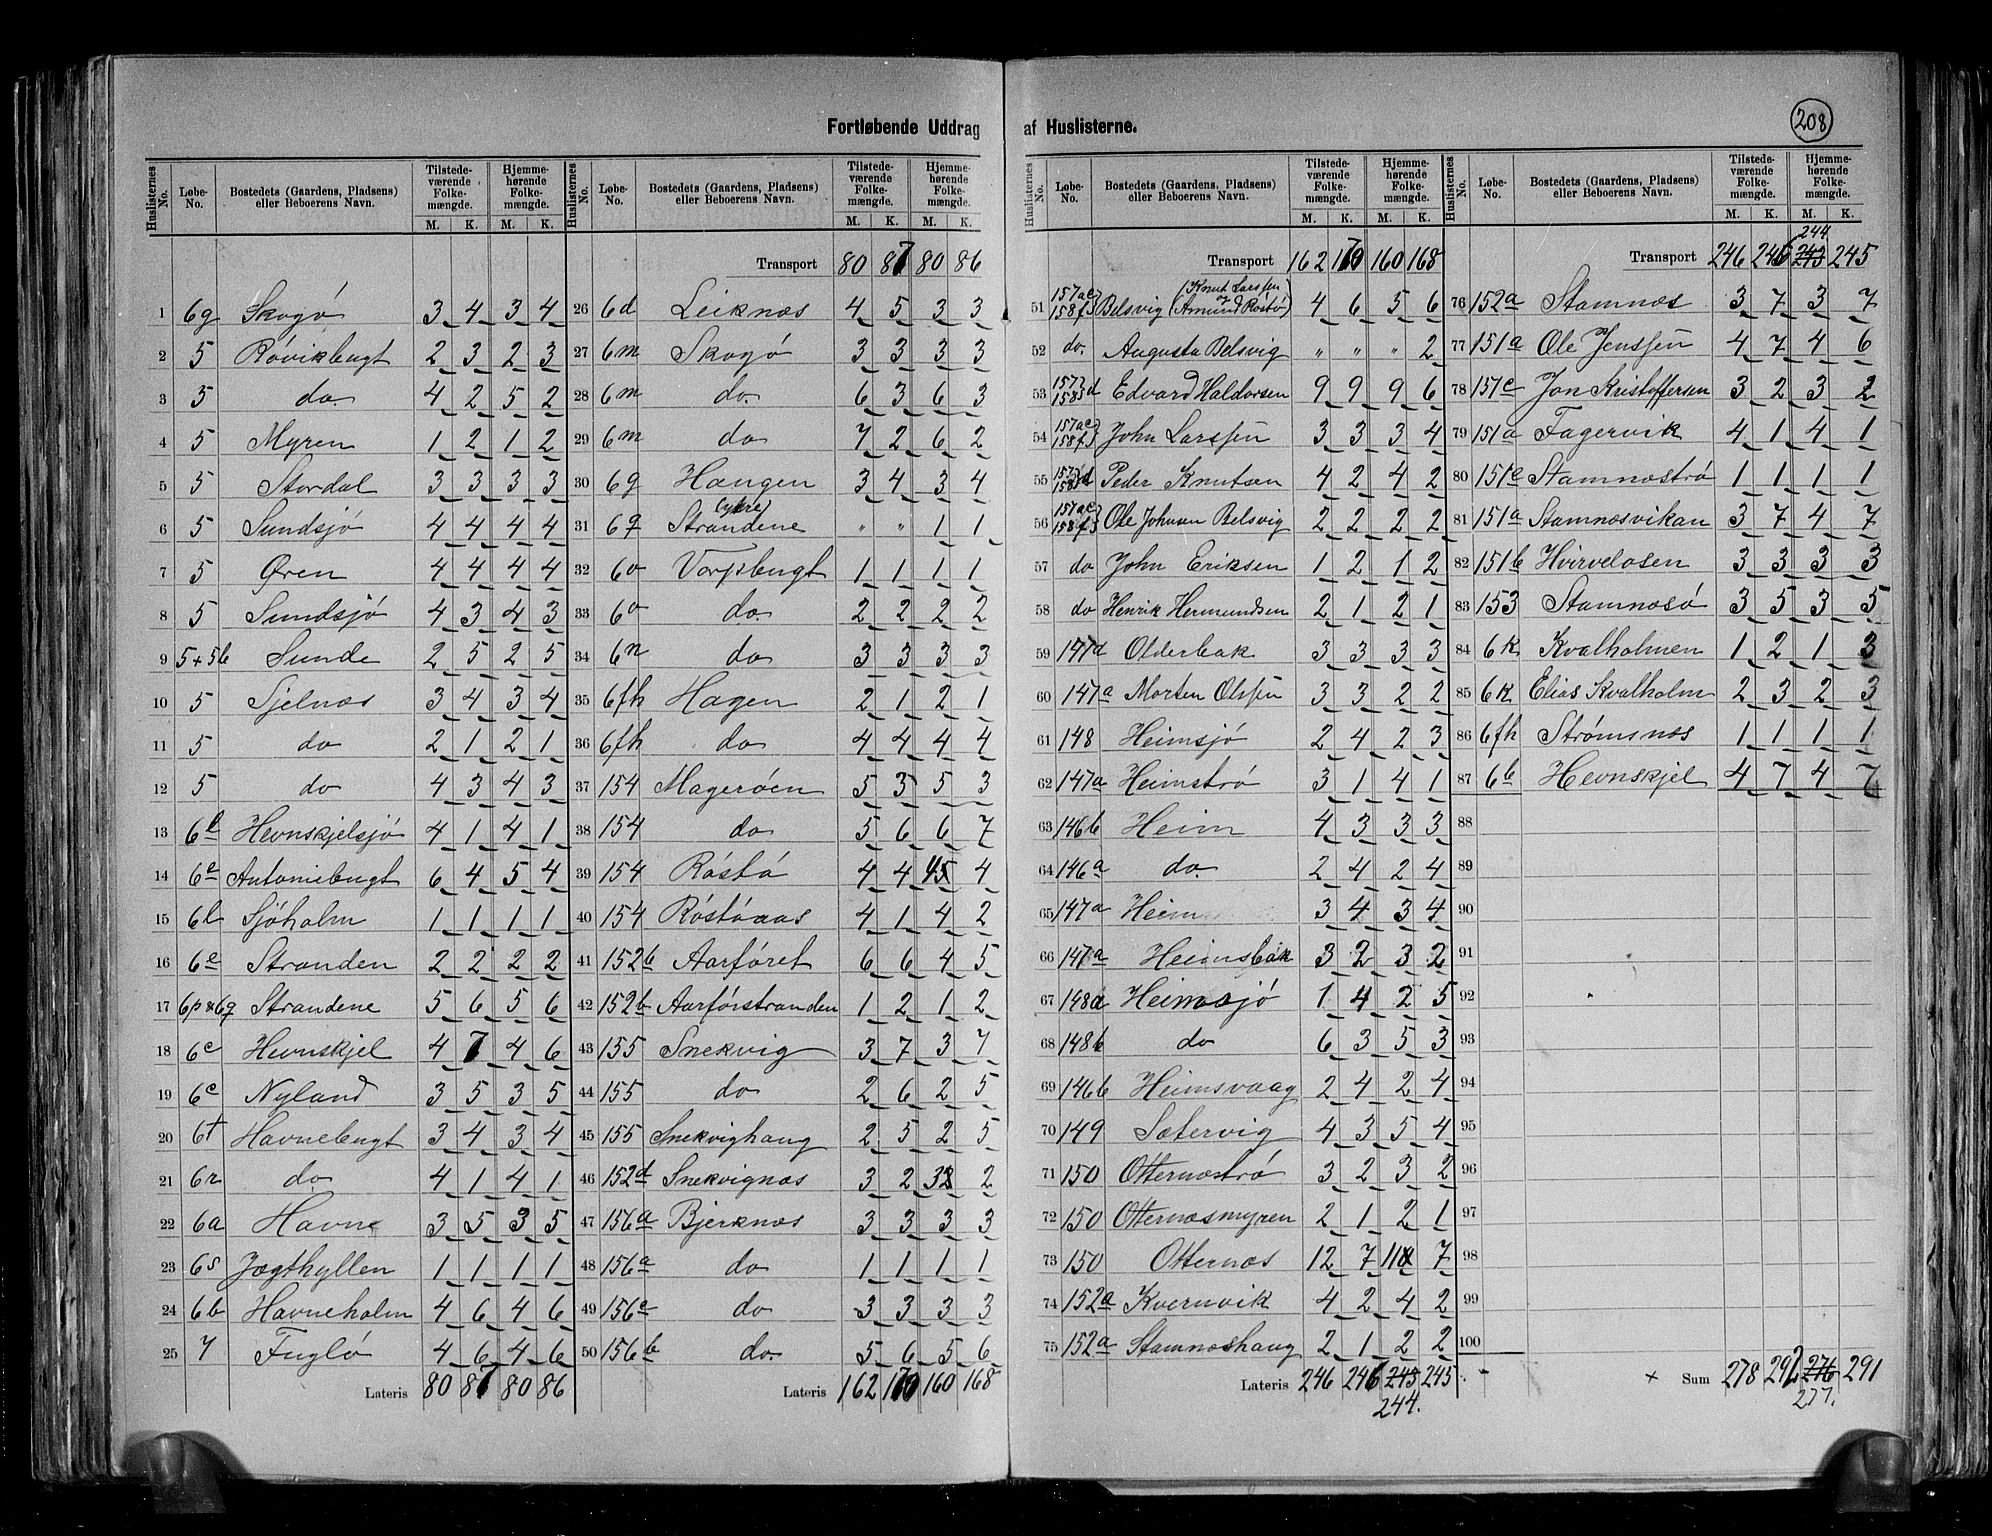 208
Fortløbende Uddrag af Huslisterne.
Huslisternes No. Løbe-No. Bostedets (Gaardens, Pladsens) eller Beboerens Navn. Tilstedeværende Folkemængde. M. K. Hjemmehørende Folkemængde. M. K.
1 6g Skogö 3 4 3 4
2 5 Rövikbugt 2 3 2 3
3 5 do. 4 2 5 2
4 5 Myren 1 2 1 2
5 5 Stordal 3 3 3 3
6 5 Sundsjö 4 4 4 4
7 5 Øren 4 4 4 4
8 5 Sundsjö 4 3 4 3
9 5+5b Sunde 2 5 2 5
10 5 Sjelnæs 3 4 3 4
11 5 do 2 1 2 1
12 5 do 4 3 4 3
13 6l Hevnskjelsjö 4 1 4 1
14 6e Antoniebugt 6 4 5 4
15 6l Sjöholm 1 1 1 1
16 6e Stranden 2 2 2 2
17 6p&6q Strandene 5 6 5 6
18 6c Hevnskjel 4 7 4 6
19 6c Nyland 3 5 3 5
20 6t Havnebugt 3 4 3 4
21 6r do. 4 1 4 1
22 6a Havne 3 5 3 5
23 6s Jægthyllen 1 1 1 1
24 6b Havneholm 4 6 4 6
25 7 Fuglö 4 6 4 6
Lateris 80 87 80 86
Huslisternes No. Løbe-No. Bostedets (Gaardens, Pladsens) eller Beboerens Navn. Tilstedeværende Folkemængde. M. K. Hjemmehørende Folkemængde. M. K.
Transport 80 87 80 86
26 6d Leiknæs 4 5 3 3
27 6m Skogö 3 3 3 3
28 6m do. 6 3 6 3
29 6m do 7 2 6 2
30 6g Haugen 3 4 3 4
31 6q Strandene Lykre „ „ 1 1
32 6o Vorpbugt 1 1 1 1
33 6o do. 2 2 2 2
34 6n do 3 3 3 3
35 6fh Hagen 2 1 2 1
36 6fh do 4 4 4 4
37 154 Mageröen 5 3 5 3
38 154 do 5 6 6 7
39 154 Röstö 4 4 45 4
40 154 Röstöaas 4 1 4 2
41 152b Aarföret 6 6 4 5
42 152b Aarförstranden 1 2 1 2
43 155 Snekvig 3 7 3 7
44 155 do 2 6 2 5
45 155 Snekvighaug 2 5 2 5
46 152d Snekvignæs 3 2 32 2
47 156a Bjerknæs 3 3 3 3
48 156a do 1 1 1 1
49 156a do 3 3 3 3
50 156b do. 5 6 5 6
Lateris 162 170 160 168
Huslisternes No. Løbe-No. Bostedets (Gaardens, Pladsens) eller Beboerens Navn. Tilstedeværende Folkemængde. M. K. Hjemmehørende Folkemængde. M. K.
Transport 162 170 160 168
51 157ac 158f Belsvig (Knut Larssen Amund Röstö) 4 6 5 6
52 do. Augusta Belsvig „ „ „ 2
53 157 158 d Edvard Haldorsen 9 9 9 6
54 157ac 158f John Larssen 3 3 3 4
55 157 158 d Peder Knutsen 4 2 4 2
56 157ac 158f Ole Johnsen Belsvig 2 2 2 2
57 do John Eriksen 1 2 1 2
58 do Henrik Hermundsen 2 1 2 1
59 147d Olderbak 3 3 3 3
60 147a Morten Olssen 3 3 2 2
61 148 Heimsjö 2 4 2 3
62 147a Heimströ 3 1 4 1
63 146b Heim 4 3 3 3
64 146a do. 2 4 2 4
65 147a Heim 3 4 3 4
66 147a Heimsbak 3 2 3 2
67 148a Heimsjö 1 4 2 5
68 148b do 6 3 5 3
69 146b Heimsvaag 2 4 2 4
70 149 Sætervig 4 3 5 4
71 150 Otternæströ 3 2 3 2
72 150 Otternæsmyren 2 1 2 1
73 150 Otternæs 12 7 11 7
74 152a Kvernvik 4 2 4 2
75 152a Stamnæshaug 2 1 2 2
Lateris 246 246 243 245
244.
Huslisternes No. Løbe-No. Bostedets (Gaardens, Pladsens) eller Beboerens Navn. Tilstedeværende Folkemængde. M. K. Hjemmehørende Folkemængde. M. K.
244
Transport 246 246 243 245
76 152a Stamnæs 3 7 3 7
77 151a Ole Jenssen 4 7 4 6
78 151c Jon Kristoffersen 3 2 3 2
79 151a Fagervik 4 1 4 1
80 151c Stamnæströ 1 1 1 1
81 151a Stamnæsvikan 3 7 4 7
82 151b Hvirvelosen 3 3 3 3
83 153 Stamnæsö 3 5 3 5
84 6k Kvalholmen 1 2 1 3
85 6k Elias Kvalholm 2 3 2 3
86 6fh Strömsnæs 1 1 1 1
87 6b Hevnskjel 4 7 4 7
88
89
90
91
92
93
94
95
96
97
98
99
100
× Sum 278 292 276 291
277.